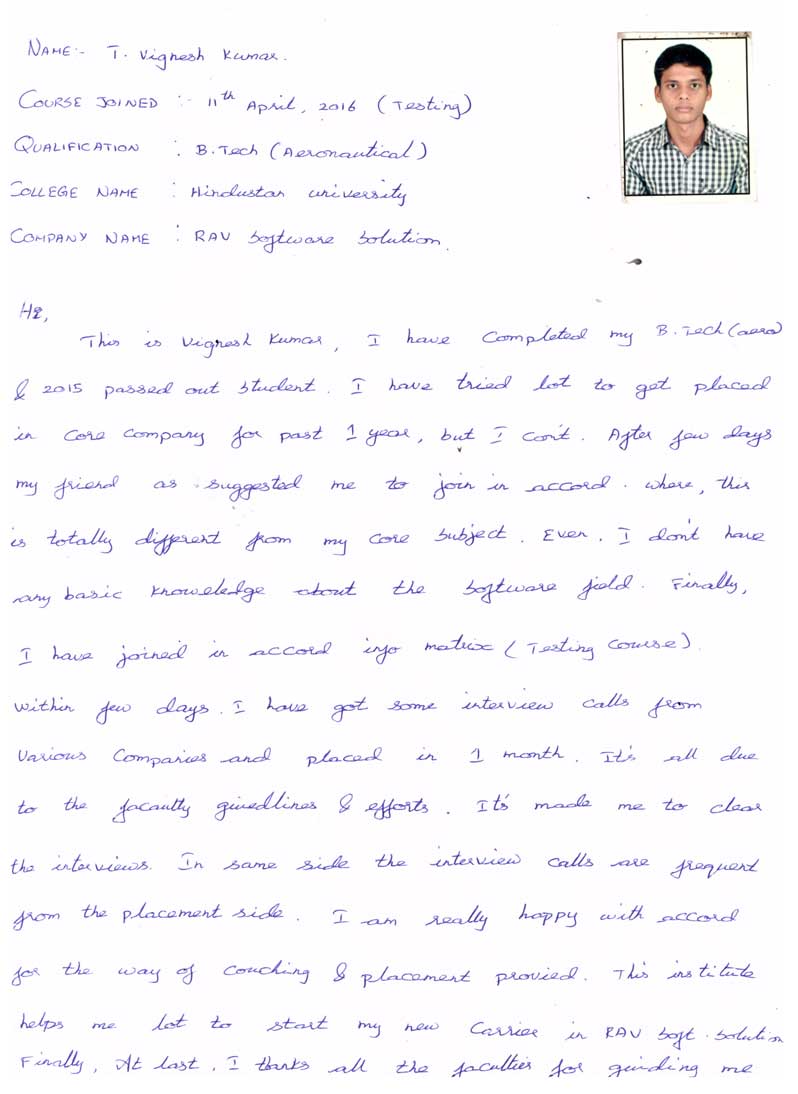 NAME:- T. Vignesh Kumar.
COURSE JOINED :- 11th April, 2016 (Testing)
QUALIFICATION : B.Tech (Aeronautical)
COLLEGE NAME : Hindustan university
COMPANY NAME : RAV Software Solution.
Hi,
This is Vignesh Kumar, I have Completed my B.Tech (aero)
& 2015 passed out Student. I have tried lot to get placed
in Core Company for past 1 year, but I can't. After few days
my friend as suggested me to join in accord. where, this
is totally different from my core Subject. Even. I don't have
any basic knoweledge about the Software field. Finally,
I have joined in accord info matrix (Testing Course).
Within few days. I have got some interview calls from
Various Companies and placed in 1 month. It's all due
to the facaulty giuedlines & efforts. It's made me to clear
the interviews. In same side the interview calls are frequent
from the placement side. I am really happy with accord
for the way of couching & placement provied. This institute
helps me lot to start my new Carrier in RAV Soft. Solution
Finally, At last, I thanks all the faculties for guiding me